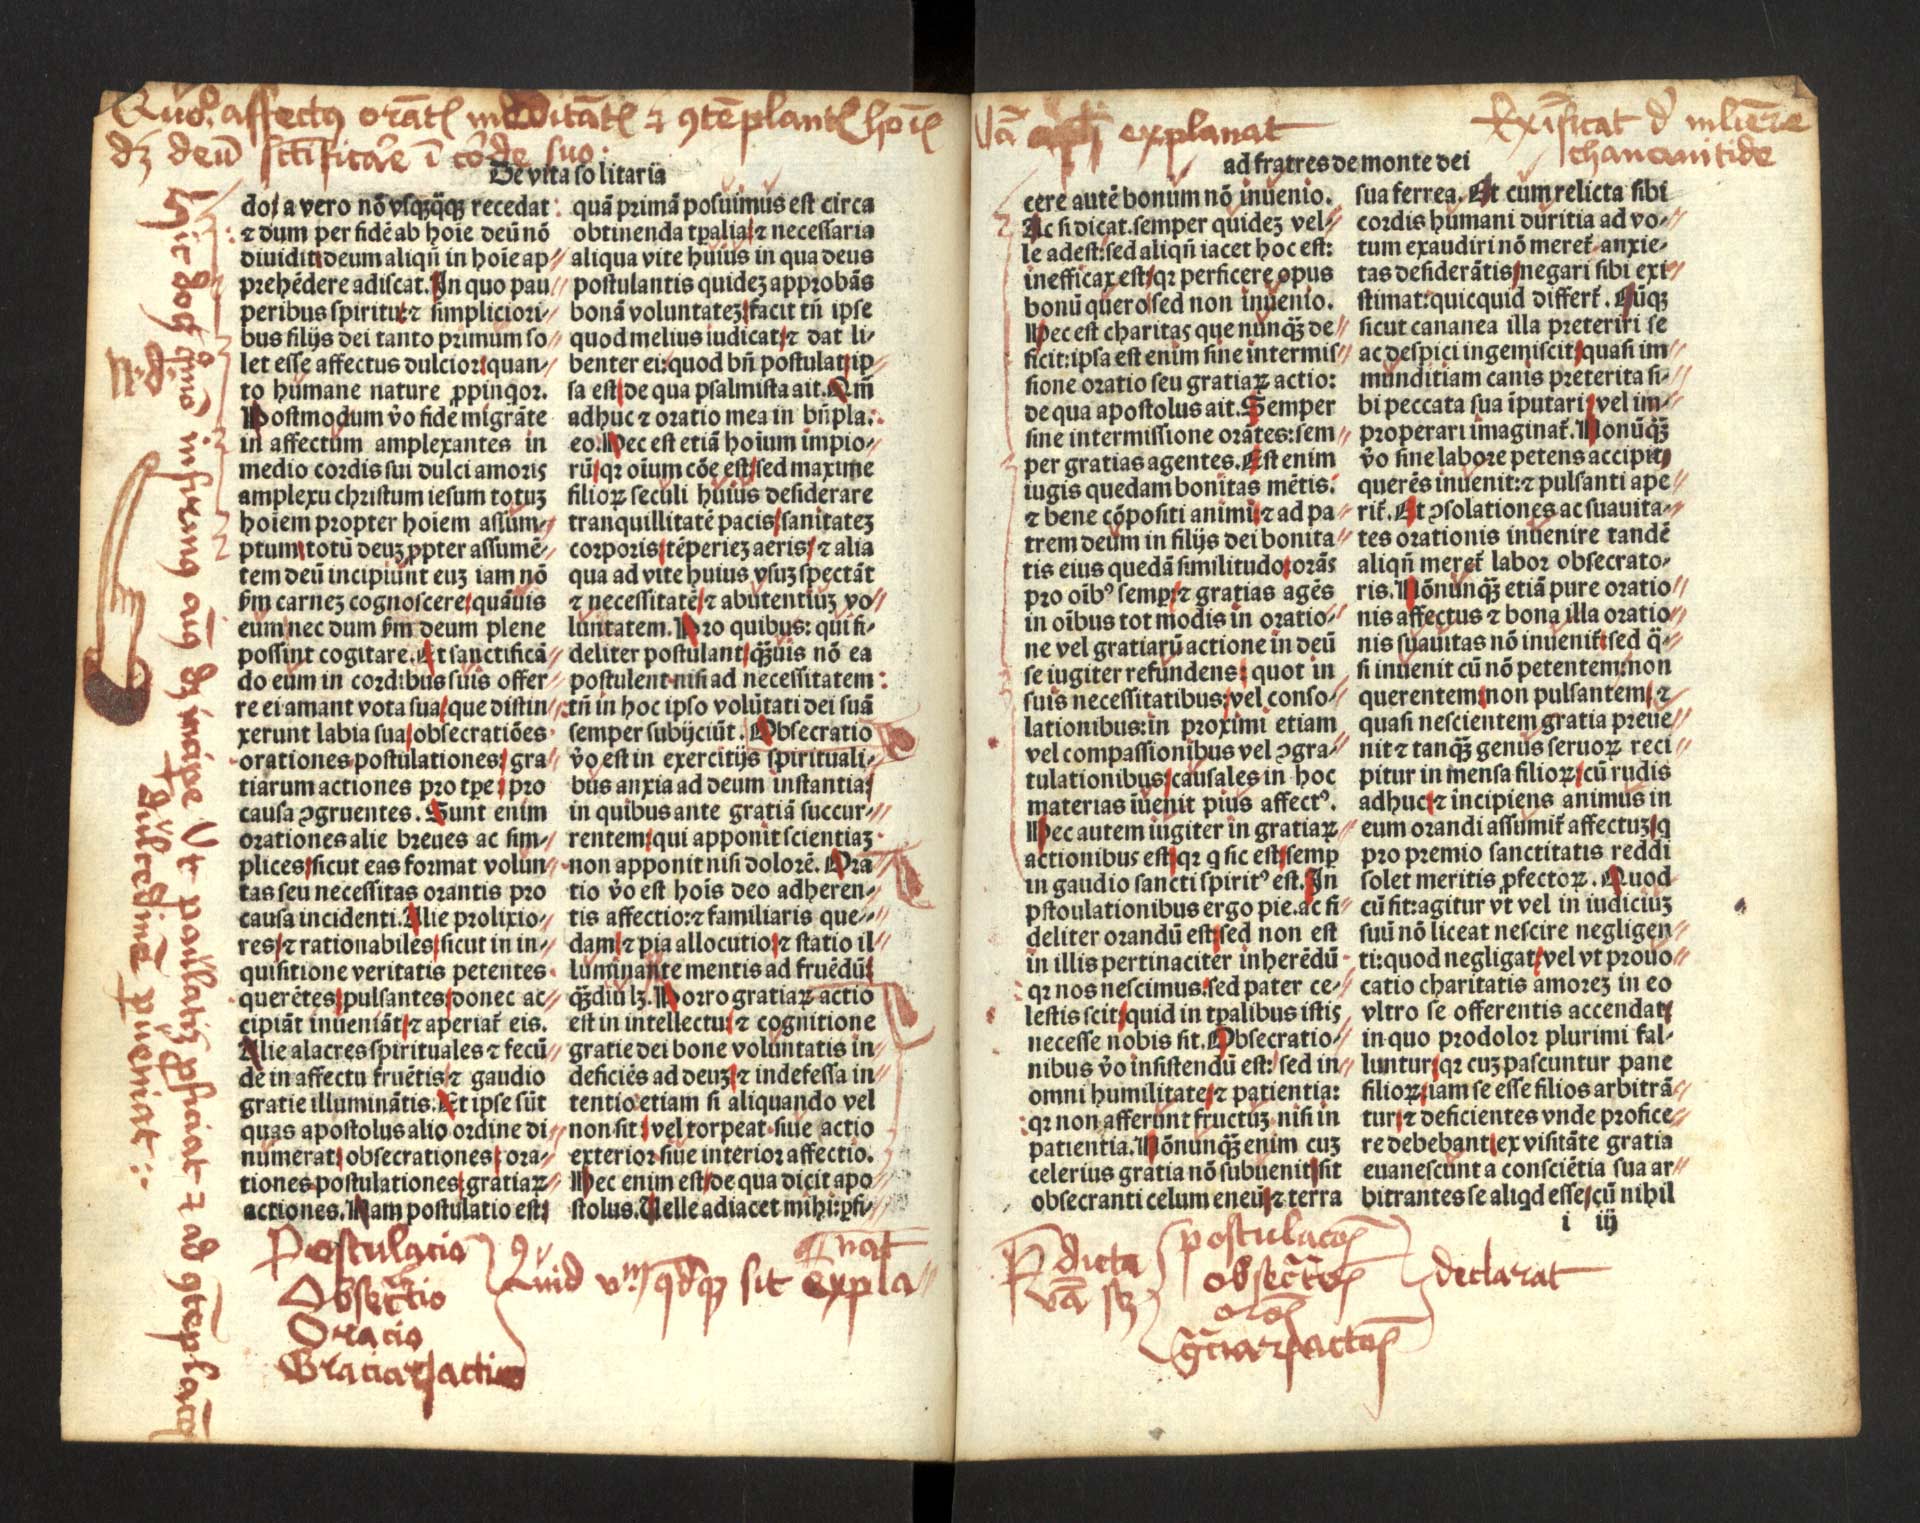 De vita solitaria
do/a vero nõ vsqꝫq̃qꝫ recedat:
⁊ dum per fidẽ ab hoĩe deũ nõ
diuidit/deum aliqñ in hoĩe ap
prehẽdere adiscat. In quo pau
peribus spiritu/⁊ simpliciori-
bus filijs dei tanto primum so
let esse affectus dulcior/quan-
to humane nature ꝓpinqor.
Postmodum v̊o fide migrãte
in affectum amplexantes in
medio cordis sui dulci amoris
amplexu christum iesum totuꝫ
hoiem propter hoiem assum-
ptum/totũ deuꝫ ꝓpter assumẽ-
tem deũ incipiunt euꝫ iam nõ
ẞm carneꝫ cognoscere/quãuis
eum nec dum ẞm deum plene
possint cogitare. Et sanctificã
do eum in cordibus suis offer
re ei amant vota sua/que distin
xerunt labia sua/obsecratiões
orationes postulationes/gra
tiarum actiones pro tꝑe/pro
causa ꝯgruentes. Sunt enim
orationes alie breues ac sim-
plices/sicut eas format volun
tas seu necessitas orantis pro
causa incidenti. Alie prolixio-
res/⁊ rationabiles/sicut in in-
quisitione veritatis petentes
querẽtes/pulsantes/donec ac-
cipiãt inueniãt/⁊ aperiat̃ eis.
Alie alacres spirituales ⁊ fecũ
de in affectu fruẽtis/⁊ gaudio
gratie illuminãtis. Et ipse sũt
quas apostolus alio ordine di
numerat/obsecrationes/ora-
tiones postulationes/gratiaꝝ
actiones. Nam postulatio est/
quã primã posuimus est circa
obtinenda tꝑalia/⁊ necessaria
aliqua vite huius in qua deus
postulantis quideꝫ approbãs
bonã voluntateꝫ/facit tñ ipse
quod melius iudicat/⁊ dat li-
benter ei:quod bñ postulat/ip
sa est/de qua psalmista ait. Qm̃
adhuc ⁊ oratio mea in bñpla.
eo. Hec est etiã hoĩum impio-
rũ/qꝛ oĩum cõe est/sed maxime
filioꝝ seculi huius desiderare
tranquillitatẽ pacis/sanitateꝫ
corporis/tẽperieꝫ aeris/⁊ alia
qua ad vite huius vsuꝫ spectãt
⁊ necessitatẽ/⁊ abutentiuꝫ vo
luntatem. Pro quibus: qui fi-
deliter postulant/q̃ꝫuis nõ ea
postulent nisi ad necessitatem:
tñ in hoc ipso volũtati dei suã
semper subijciũt. Obsecratio
v̊o est in exercitijs spirituali-
bus anxia ad deum instantia/
in quibus ante gratiã succur-
rentem/qui apponit scientiaꝫ
non apponit nisi dolorẽ. Ora
tio v̊o est hoĩs deo adheren-
tis affectio:⁊ familiaris que-
dam/⁊ pia allocutio/⁊ statio il
luminante mentis ad fruẽdũ/
q̃ꝫdiu lꝫ. Porro gratiaꝝ actio
est in intellectu/⁊ cognitione
gratie dei bone voluntatis in
deficiẽs ad deuꝫ/⁊ indefessa in
tentio etiam si aliquando vel
non sit/vel torpeat siue actio
exterior siue interior affectio.
Hec enim est/de qua dicit apo
stolus. Uelle adiacet mihi:ꝑfi-
Postulacio
Obsecratio
Oracio
Graciarꝝ actio
ad fratres de monte dei
cere autẽ bonum nõ inuenio.
Ac si dicat. semper quideꝫ vel-
le adest:sed aliqñ iacet hoc est:
inefficax est/qꝛ perficere opus
bonũ quero/sed non inuenio.
Hec est charitas que nunq̃ꝫ de
ficit:ipsa est enim sine intermis
sione oratio seu gratiaꝝ actio:
de qua apostolus ait. Semper
sine intermissione orãtes:sem
per gratias agentes. Est enim
iugis quedam bonitas mẽtis:
⁊ bene cõpositi animi/⁊ ad pa
trem deum in filijs dei bonita
tis eius quedã similitudo/orãs
pro oĩbꝰ semꝑ/⁊ gratias agẽs
in oĩbus tot modis in oratio-
ne vel gratiarũ actione in deũ
se iugiter refundens: quot in
suis necessitatibus/vel conso-
lationibus:in proximi etiam
vel compassionibus vel ꝯgra-
tulationibus/causales in hoc
materias iñuenit pius affectꝰ.
Hec autem iugiter in gratiaꝝ
actionibus est/qꝛ q sic est/semꝑ
in gaudio sancti spiritꝰ est. In
pstoulationibus ergo pie. ac fi
deliter orandũ est/sed non est
in illis pertinaciter inherẽdũ
qꝛ nos nescimus/sed pater ce-
lestis scit/quid in tꝑalibus istis
necesse nobis sit. Obsecratio-
nibus v̊o insistendũ est: sed in
omni humilitate/⁊ patientia:
qꝛ non afferunt fructuꝫ nisi in
patientia. Nõnunq̃ꝫ enim cuꝫ
celerius gratia nõ subuenit/sit
obsecranti celum eneũ/⁊ terra
sua ferrea. Et cum relicta sibi
cordis humani duritia ad vo-
tum exaudiri nõ meret̃ anxie-
tas desiderãtis/negari sibi exi
stimat:quicquid differt̃. Cũqꝫ
sicut cananea illa preteriri se
ac despici ingemiscit/quasi im
munditiam canis preterita si-
bi peccata sua ĩputari/vel im-
properari imaginat̃. Nonũq̃ꝫ
v̊o sine labore petens accipit/
querẽs inuenit:⁊ pulsanti ape
rit̃. Et ꝯsolationes ac suauita-
tes orationis inuenire tandẽ
aliqñ meret̃ labor obsecrato-
ris. Nõnunq̃ꝫ etiã pure oratio
nis affectus ⁊ bona illa oratio
nis suauitas nõ inuenit̃:sed q̃-
si inuenit cũ nõ petentem:non
querentem/non pulsantem/⁊
quasi nescientem gratia preue
nit ⁊ tanq̃ꝫ genus seruoꝝ reci
pitur in mensa filioꝝ/cũ rudis
adhuc/⁊ incipiens animus in
eum orandi assumit̃ affectuꝫ/q
pro premio sanctitatis reddi
solet meritis ꝓfectoꝝ. Quod
cũ fit:agitur vt vel in iudiciuꝫ
suũ nõ liceat nescire negligen
ti:quod negligat/vel vt prouo
catio charitatis amoreꝫ in eo
vltro se offerentis accendat/
in quo prodolor plurimi fal-
luntur/qꝛ cuꝫ pascuntur pane
filioꝝ/iam se esse filios arbitrã
tur/⁊ deficientes vnde profice
re debebant/ex visitãte gratia
euanescunt a consciẽtia sua ar
bitrantes se aliqd esse/cũ nihil
i iij
declarat